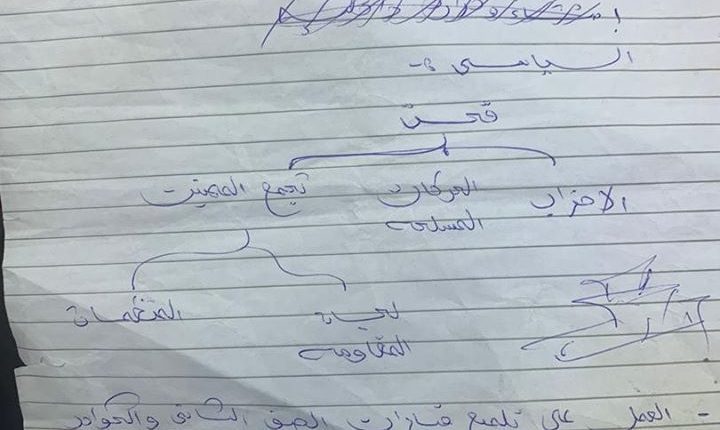 السياسى :-
قحت
الاحزاب الحركات المسلحة تجمع المهنيين
لجان المقاومة
- العمل على تلميع قيادات الصف الثانى والكوادر